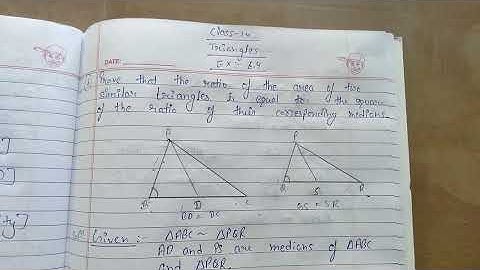 Class-10
Triangles
Ex:- 6.4
DATE:
Prove that the ratio of the area of two
similar triangles is equal to the square
of the ratio of their corresponding medians.
A
P
B
D
C
Q
S
R
BD = DC
QS = SR
Given: ΔABC ~ ΔPQR
AD and PS are medians of ΔABC
and ΔPQR.